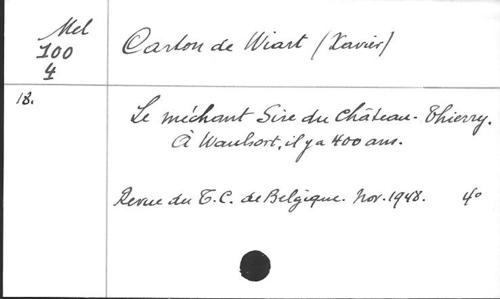 Mel
100
4
Carton de Wiart (Xavier)
18.
Le méchant Sire du Château-Thierry.
À Waulsort, il y a 400 ans.
Revue du T.C. de Belgique. Nov. 1948. 4°